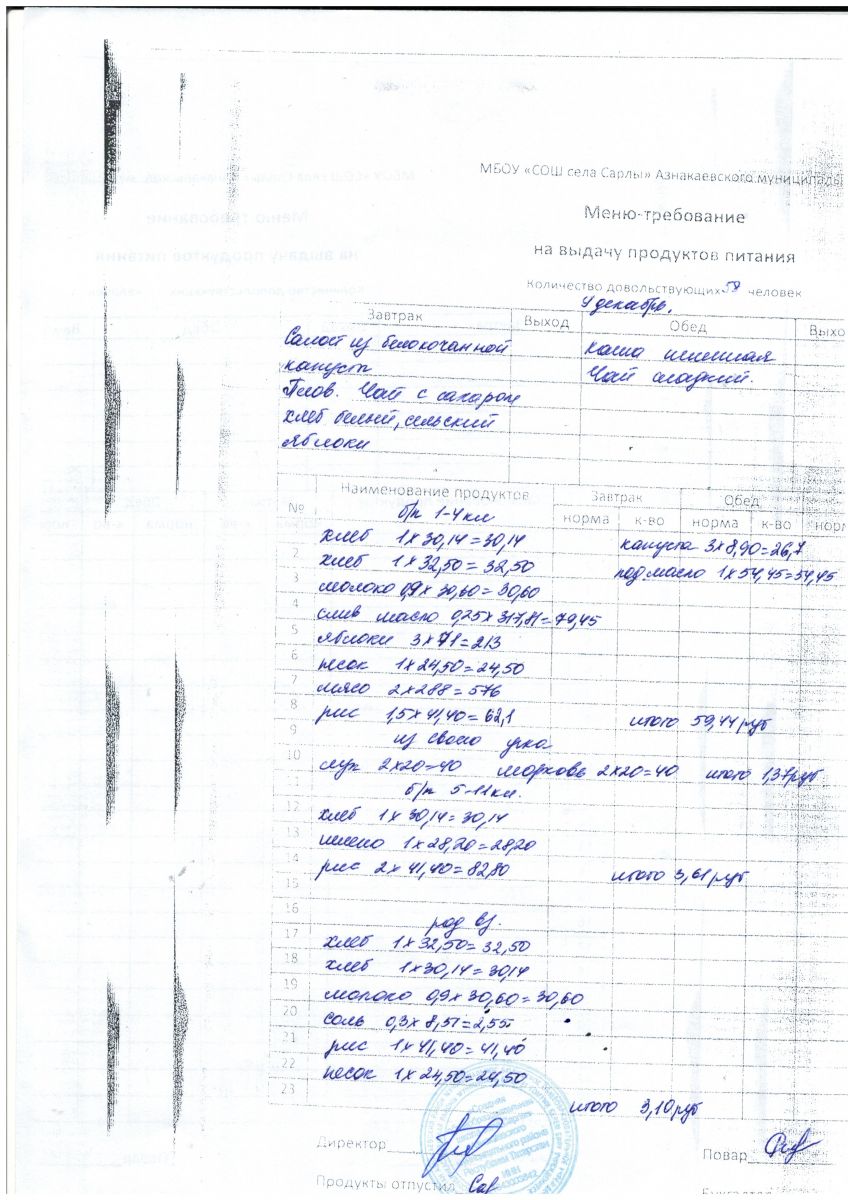 МБОУ «СОШ села Сарлы» Азнакаевского муниципаль
Меню-требование
на выдачу продуктов питания
Количество довольствующих 59 человек
4 декабрь.
Завтрак Выход Обед Выхо
Салат из белокочанной каша пшенная
капусты Чай сладкий.
Плов. Чай с сахаром
хлеб белый, сельский
яблоки
№ Наименование продуктов Завтрак Обед
норма к-во норма к-во норм
б/п 1-4 кл
хлеб 1х30,14=30,14 капуста 3х8,90=26,7
2 хлеб 1х32,50=32,50 под.масло 1х54,45=54,45
3 молоко 0,9х30,60=30,60
4 слив масло 0,25х317,81=79,45
5 яблоки 3х71=213
6 песок 1х24,50=24,50
7 мясо 2х288=576
8 рис 1,5х41,40=62,1 итого 59,44 руб
9 из своего
10 лук 2х20=40 морковь 2х20=40 итого 1,37 руб
11 б/п 5-11 кл.
12 хлеб 1х30,14=30,14
13 пшено 1х28,20=28,20
14 рис 2х41,40=82,80 итого 3,61 руб
15
16
17 род вз.
хлеб 1х32,50=32,50
18 хлеб 1х30,14=30,14
19 молоко 0,9х30,60=30,60
20 соль 0,3х8,51=2,55
21 рис 1х41,40=41,40
22 песок 1х24,50=24,50
23
итого 3,10 руб
Директор
Повар
Продукты отпустил